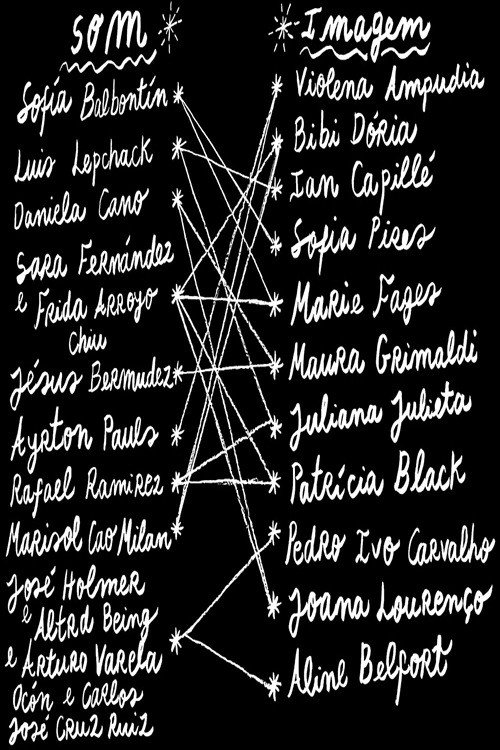 som
Sofía Balbontín
Luis Lepchack
Daniela Cano
Sara Fernández
e Frida Arroyo
Chiu
Jésus Bermudez
Ayrton Pauls
Rafael Ramirez
Marisol Cao Milan
José Holmer
e Altrd Being
e Arturo Varela
Ocón e Carlos
José Cruz Ruiz
Imagem
Violena Ampudia
Bibi Dória
Ian Capillé
Sofia Pires
Marie Fages
Maura Grimaldi
Juliana Julieta
Patrícia Black
Pedro Ivo Carvalho
Joana Lourenço
Aline Belfort